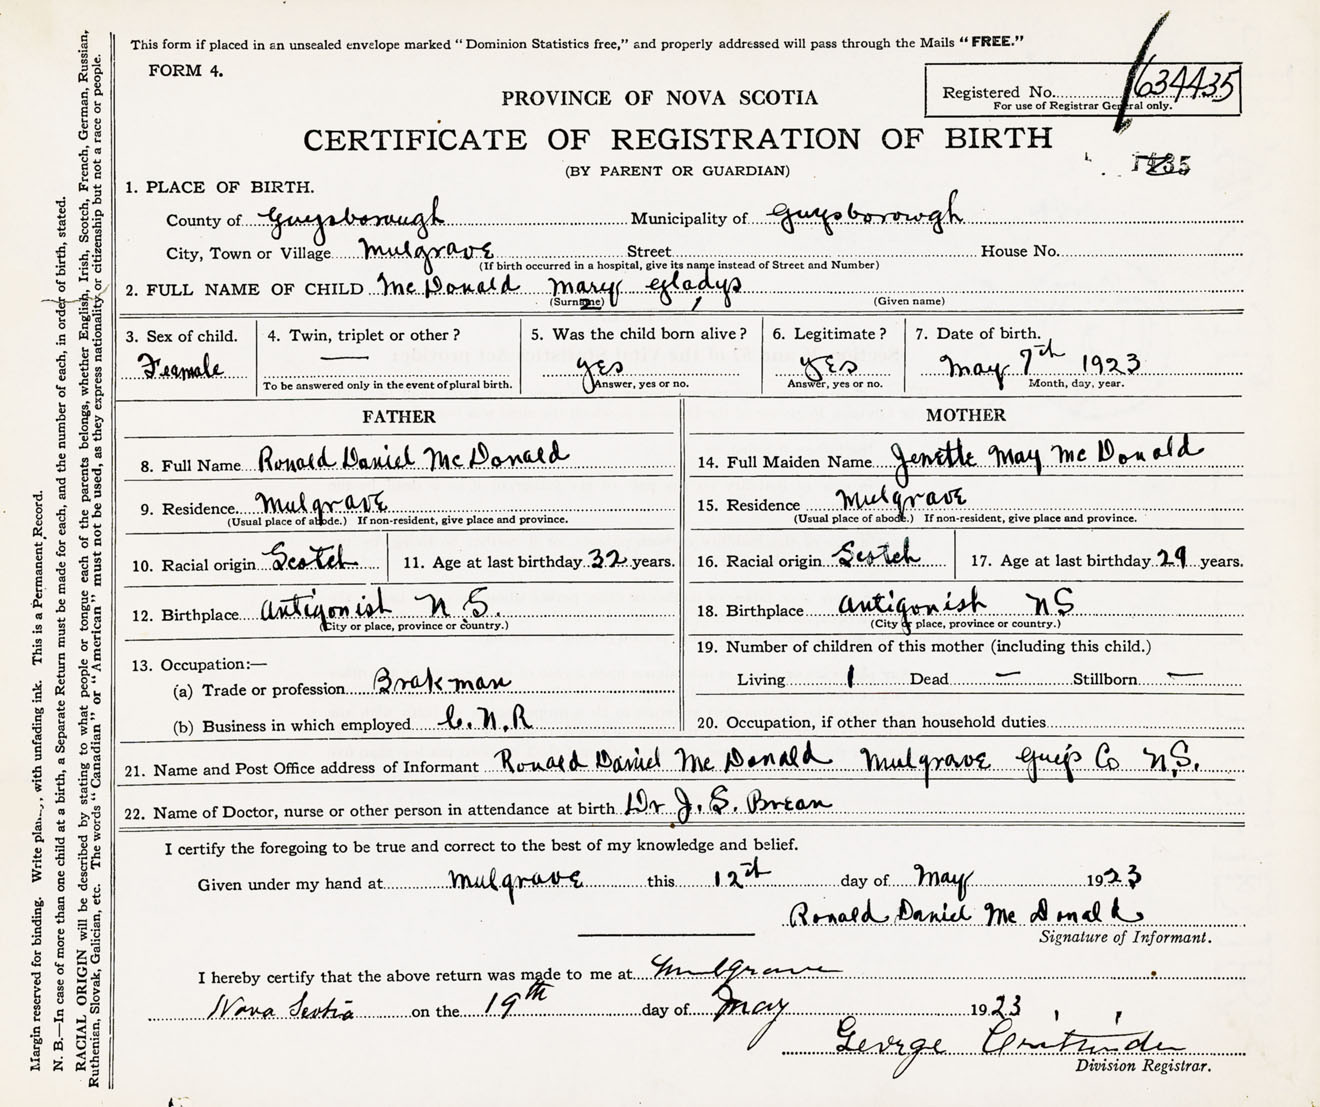 This form if placed in an unsealed envelope marked “Dominion Statistics free,” and properly addressed will pass through the Mails “FREE.”
FORM 4.
Registered No. 634435
For use of Registrar General only.
PROVINCE OF NOVA SCOTIA
CERTIFICATE OF REGISTRATION OF BIRTH
(BY PARENT OR GUARDIAN)
1. PLACE OF BIRTH.
County of Guysborough Municipality of Guysborowgh
City, Town or Village Mulgrave Street House No.
(If birth occurred in a hospital, give its name instead of Street and Number)
2. FULL NAME OF CHILD McDonald Mary Gladys
(Surname) (Given name)
3. Sex of child. 4. Twin, triplet or other? 5. Was the child born alive? 6. Legitimate? 7. Date of birth.
Feamale — yes yes May 7th 1923
To be answered only in the event of plural birth. Answer, yes or no. Answer, yes or no. Month, day, year.
FATHER
8. Full Name Ronald Daniel McDonald
9. Residence Mulgrave
(Usual place of abode.) If non-resident, give place and province.
10. Racial origin Scotch 11. Age at last birthday 32 years.
12. Birthplace Antigonish N.S.
(City or place, province or country.)
13. Occupation:—
(a) Trade or profession Brakman
(b) Business in which employed C.N.R
MOTHER
14. Full Maiden Name Jenette May McDonald
15. Residence Mulgrave
(Usual place of abode.) If non-resident, give place and province.
16. Racial origin Scotch 17. Age at last birthday 29 years.
18. Birthplace Antigonish NS
(City or place, province or country.)
19. Number of children of this mother (including this child.)
Living 1 Dead — Stillborn —
20. Occupation, if other than household duties
21. Name and Post Office address of Informant Ronald Daniel McDonald Mulgrave Guys Co N.S.
22. Name of Doctor, nurse or other person in attendance at birth Dr J. S. Brean
I certify the foregoing to be true and correct to the best of my knowledge and belief.
Given under my hand at Mulgrave this 12th day of May 1923
Ronald Daniel McDonald
Signature of Informant.
I hereby certify that the above return was made to me at Mulgrave
Nova Scotia on the 19th day of May 1923
George
Division Registrar.
Margin reserved for binding. Write with unfading ink. This is a Permanent Record.
N. B.—In case of more than one child at a birth, a Separate Return must be made for each, and the number of each, in order of birth, stated.
RACIAL ORIGIN will be described by stating to what people or tongue each of the parents belongs, whether English, Irish, Scotch, French, German, Russian,
Ruthenian, Slovak, Galician, etc. The words “Canadian” or “American” must not be used, as they express nationality or citizenship but not a race or people.